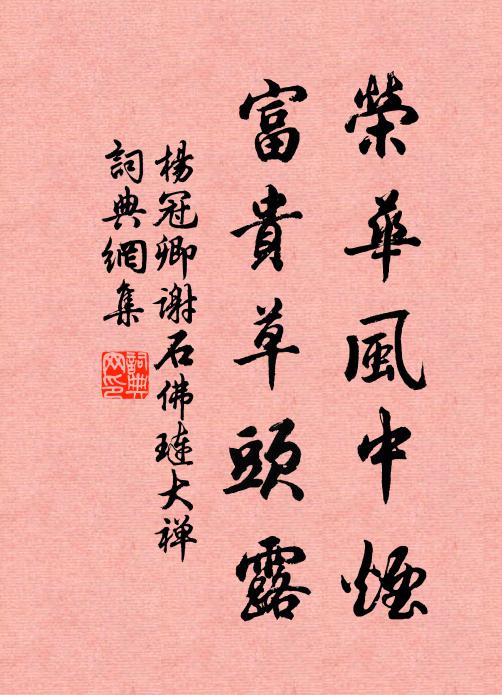 榮華風中煙
富貴草頭露
楊冠卿謝石佛璉大禅
詞典網集
詞典
网印